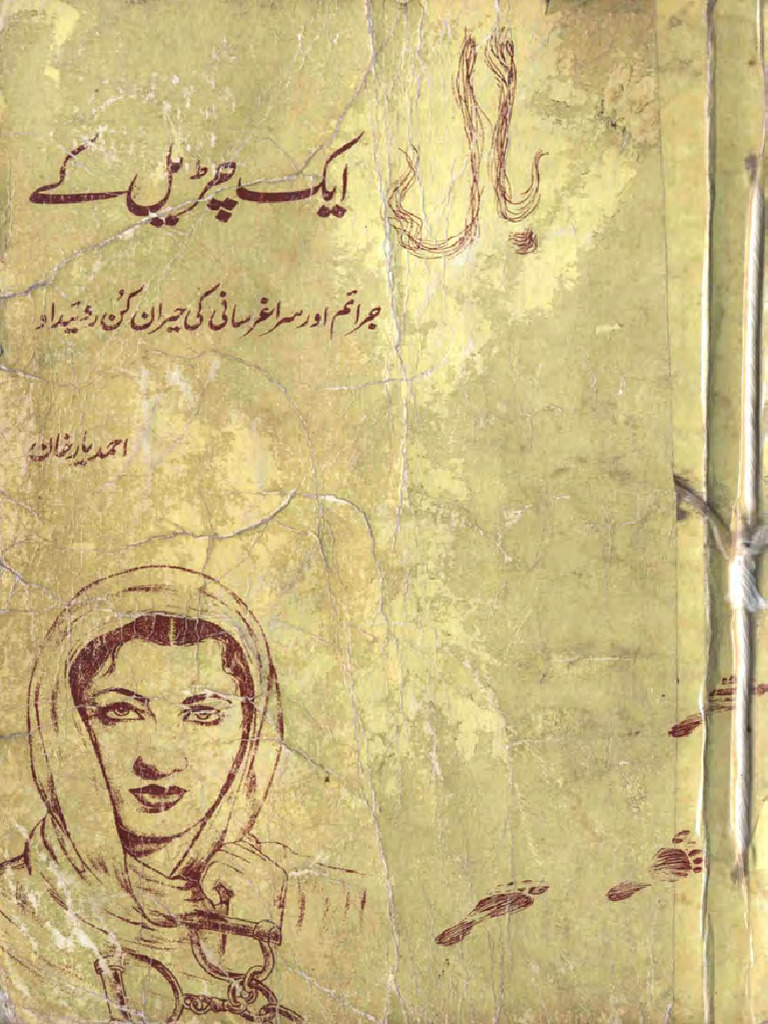 بال
ایک چڑیل کے
جرائم اور سراغرسانی کی حیران کُن روئیداد
احمد یار خان